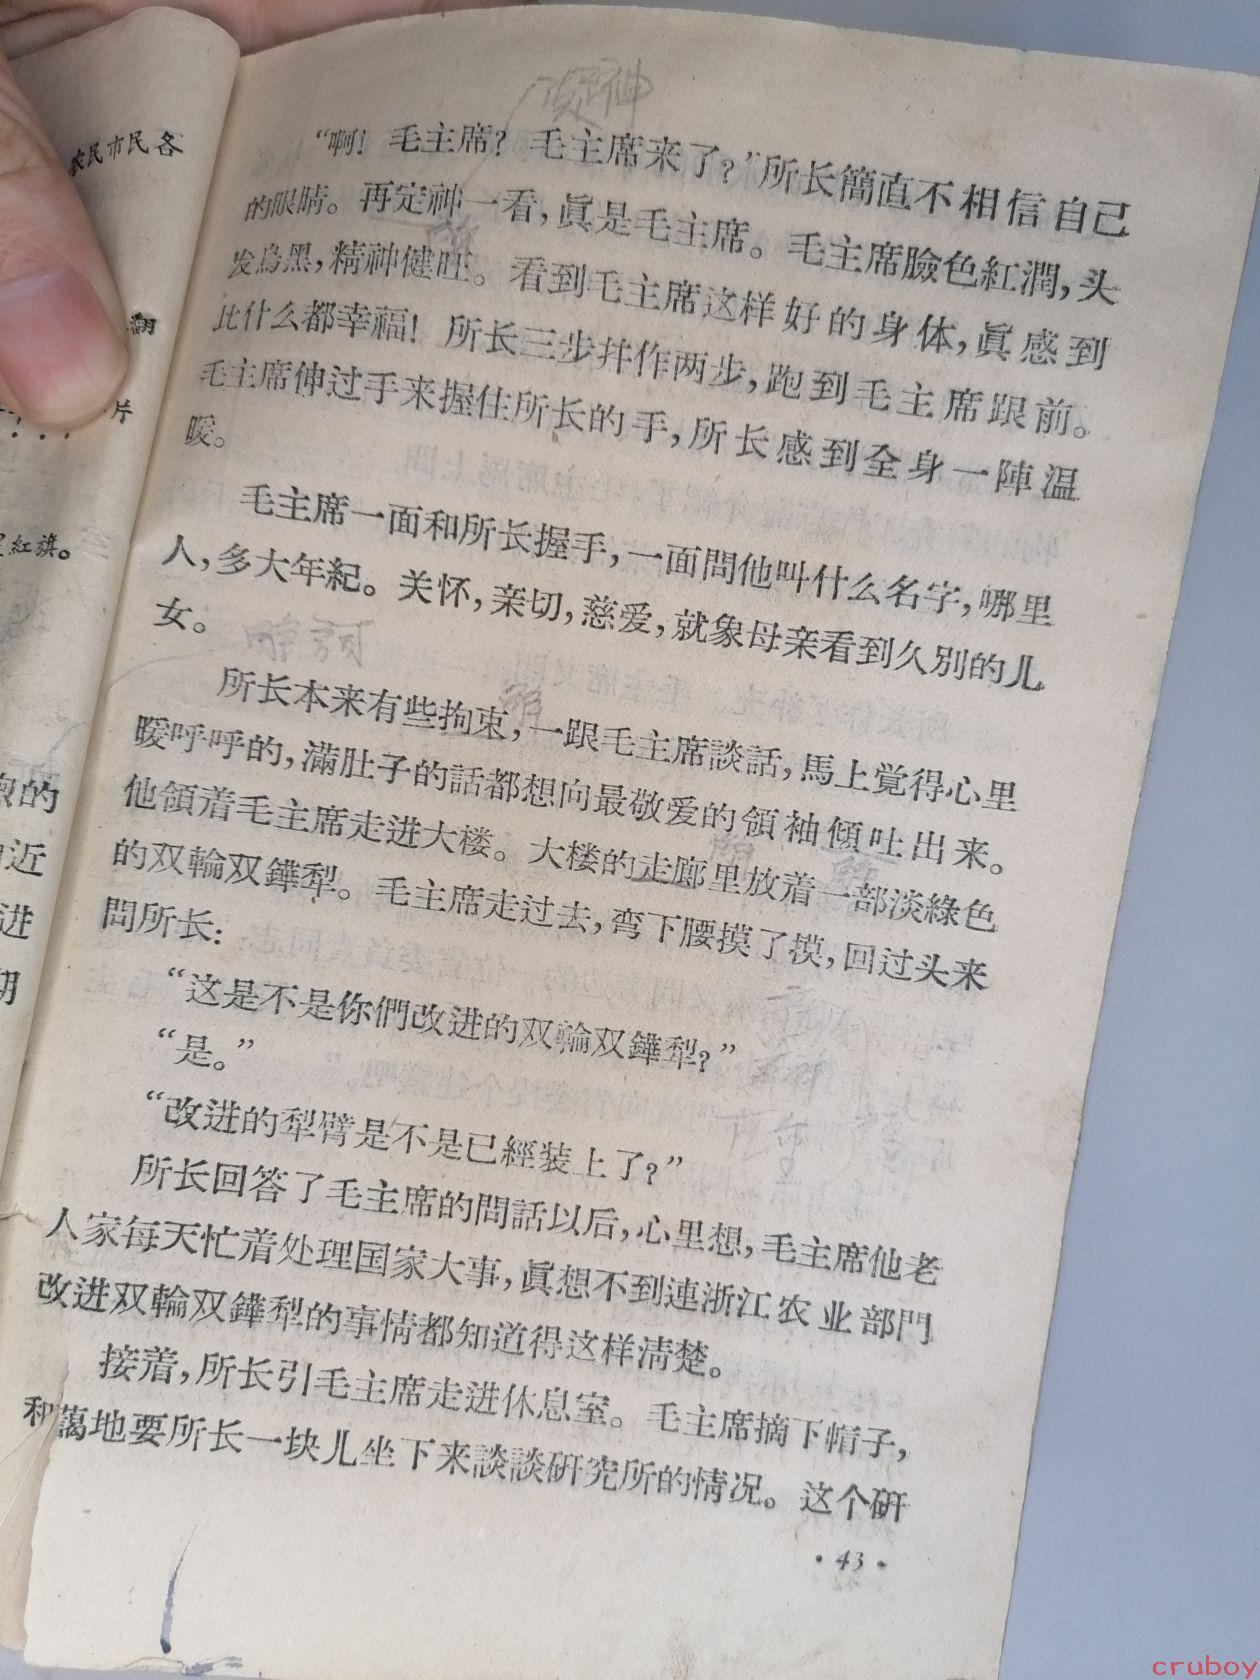 农民市民各
翻
片
紅旗。
的
近
进
期
定神
“啊！毛主席？毛主席来了？”所长簡直不相信自己
的眼睛。再定神一看，眞是毛主席。毛主席臉色紅潤，头
发烏黑，精神健旺。看到毛主席这样好的身体，眞感到
比什么都幸福！所长三步拼作两步，跑到毛主席跟前。
毛主席伸过手来握住所长的手，所长感到全身一陣温
暖。
毛主席一面和所长握手，一面問他叫什么名字，哪里
人，多大年紀。关怀，亲切，慈爱，就象母亲看到久別的儿
女。
解詞
所长本来有些拘束，一跟毛主席談話，馬上覚得心里
暖呼呼的，滿肚子的話都想向最敬爱的領袖傾吐出来。
他領着毛主席走进大楼。大楼的走廊里放着一部淡綠色
的双輪双鏵犁。毛主席走过去，弯下腰摸了摸，回过头来
問所长：
“这是不是你們改进的双輪双鏵犁？”
“是。”
“改进的犁臂是不是已經装上了？”
所长回答了毛主席的問話以后，心里想，毛主席他老
人家每天忙着处理国家大事，眞想不到連浙江农业部門
改进双輪双鏵犁的事情都知道得这样清楚。
接着，所长引毛主席走进休息室。毛主席摘下帽子，
和藹地要所长一块儿坐下来談談研究所的情况。这个研
·43·
cruboy